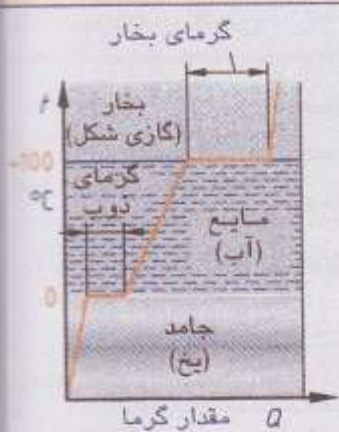 گرمای بخار
t
بخار
(گازی شکل)
100
گرمای
ذوب
°C
مایع
(آب)
0
جامد
(یخ)
مقدار گرما Q